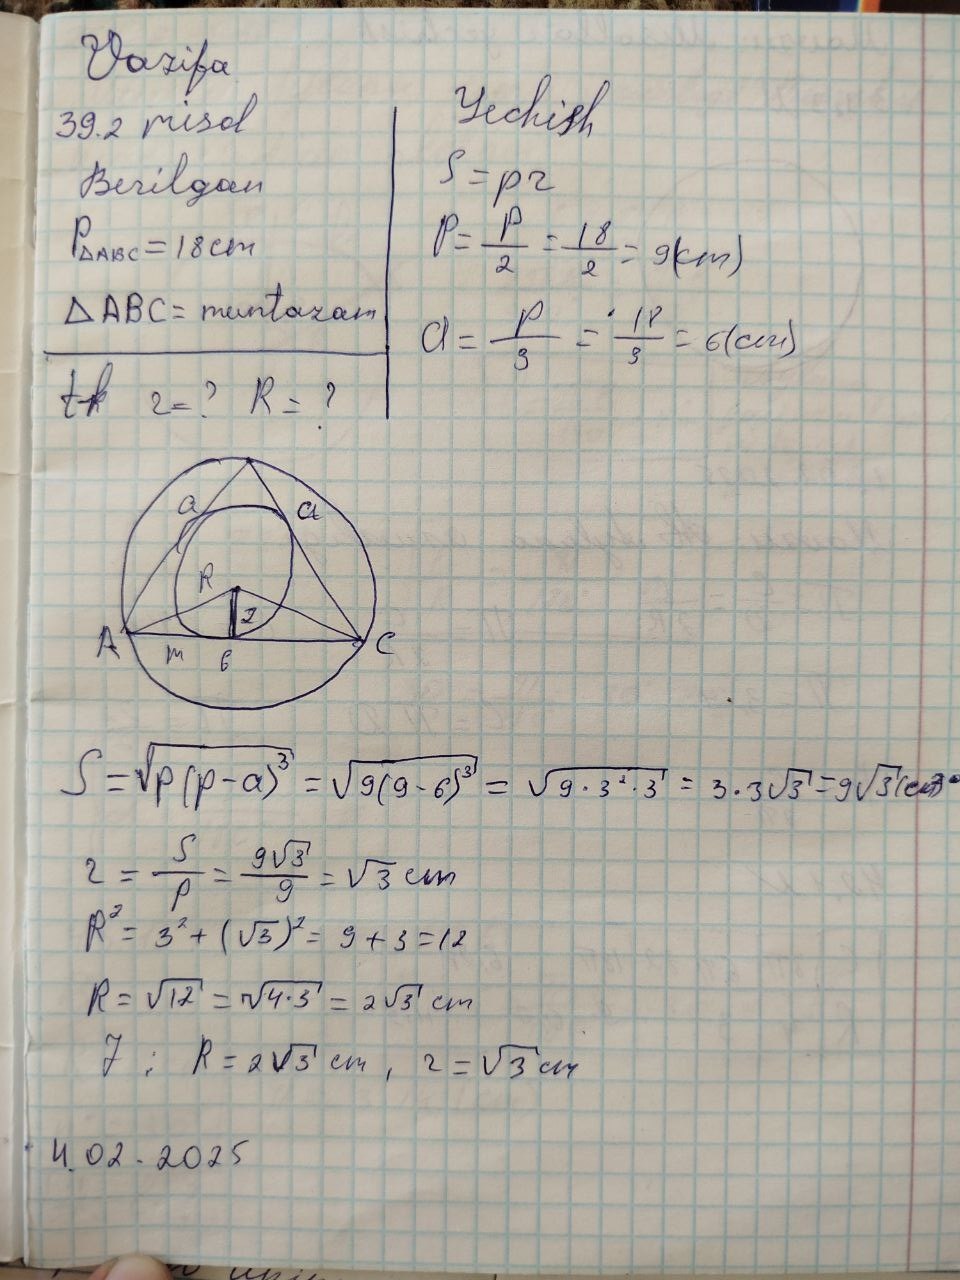 Vazifa
39.2 misol
Berilgan
P△ABC = 18 cm
△ABC = muntazam
t-k r = ? R = ?
Yechish
S = pr
P = P/2 = 18/2 = 9(cm)
a = P/3 = 18/3 = 6(cm)
a a
R r
A m 6 C
S = √p(p-a)³ = √9(9-6)³ = √9·3²·3 = 3·3√3 = 9√3(cm)²
r = S/p = 9√3/9 = √3 cm
R² = 3² + (√3)² = 9 + 3 = 12
R = √12 = √4·3 = 2√3 cm
J : R = 2√3 cm, r = √3 cm
4.02.2025